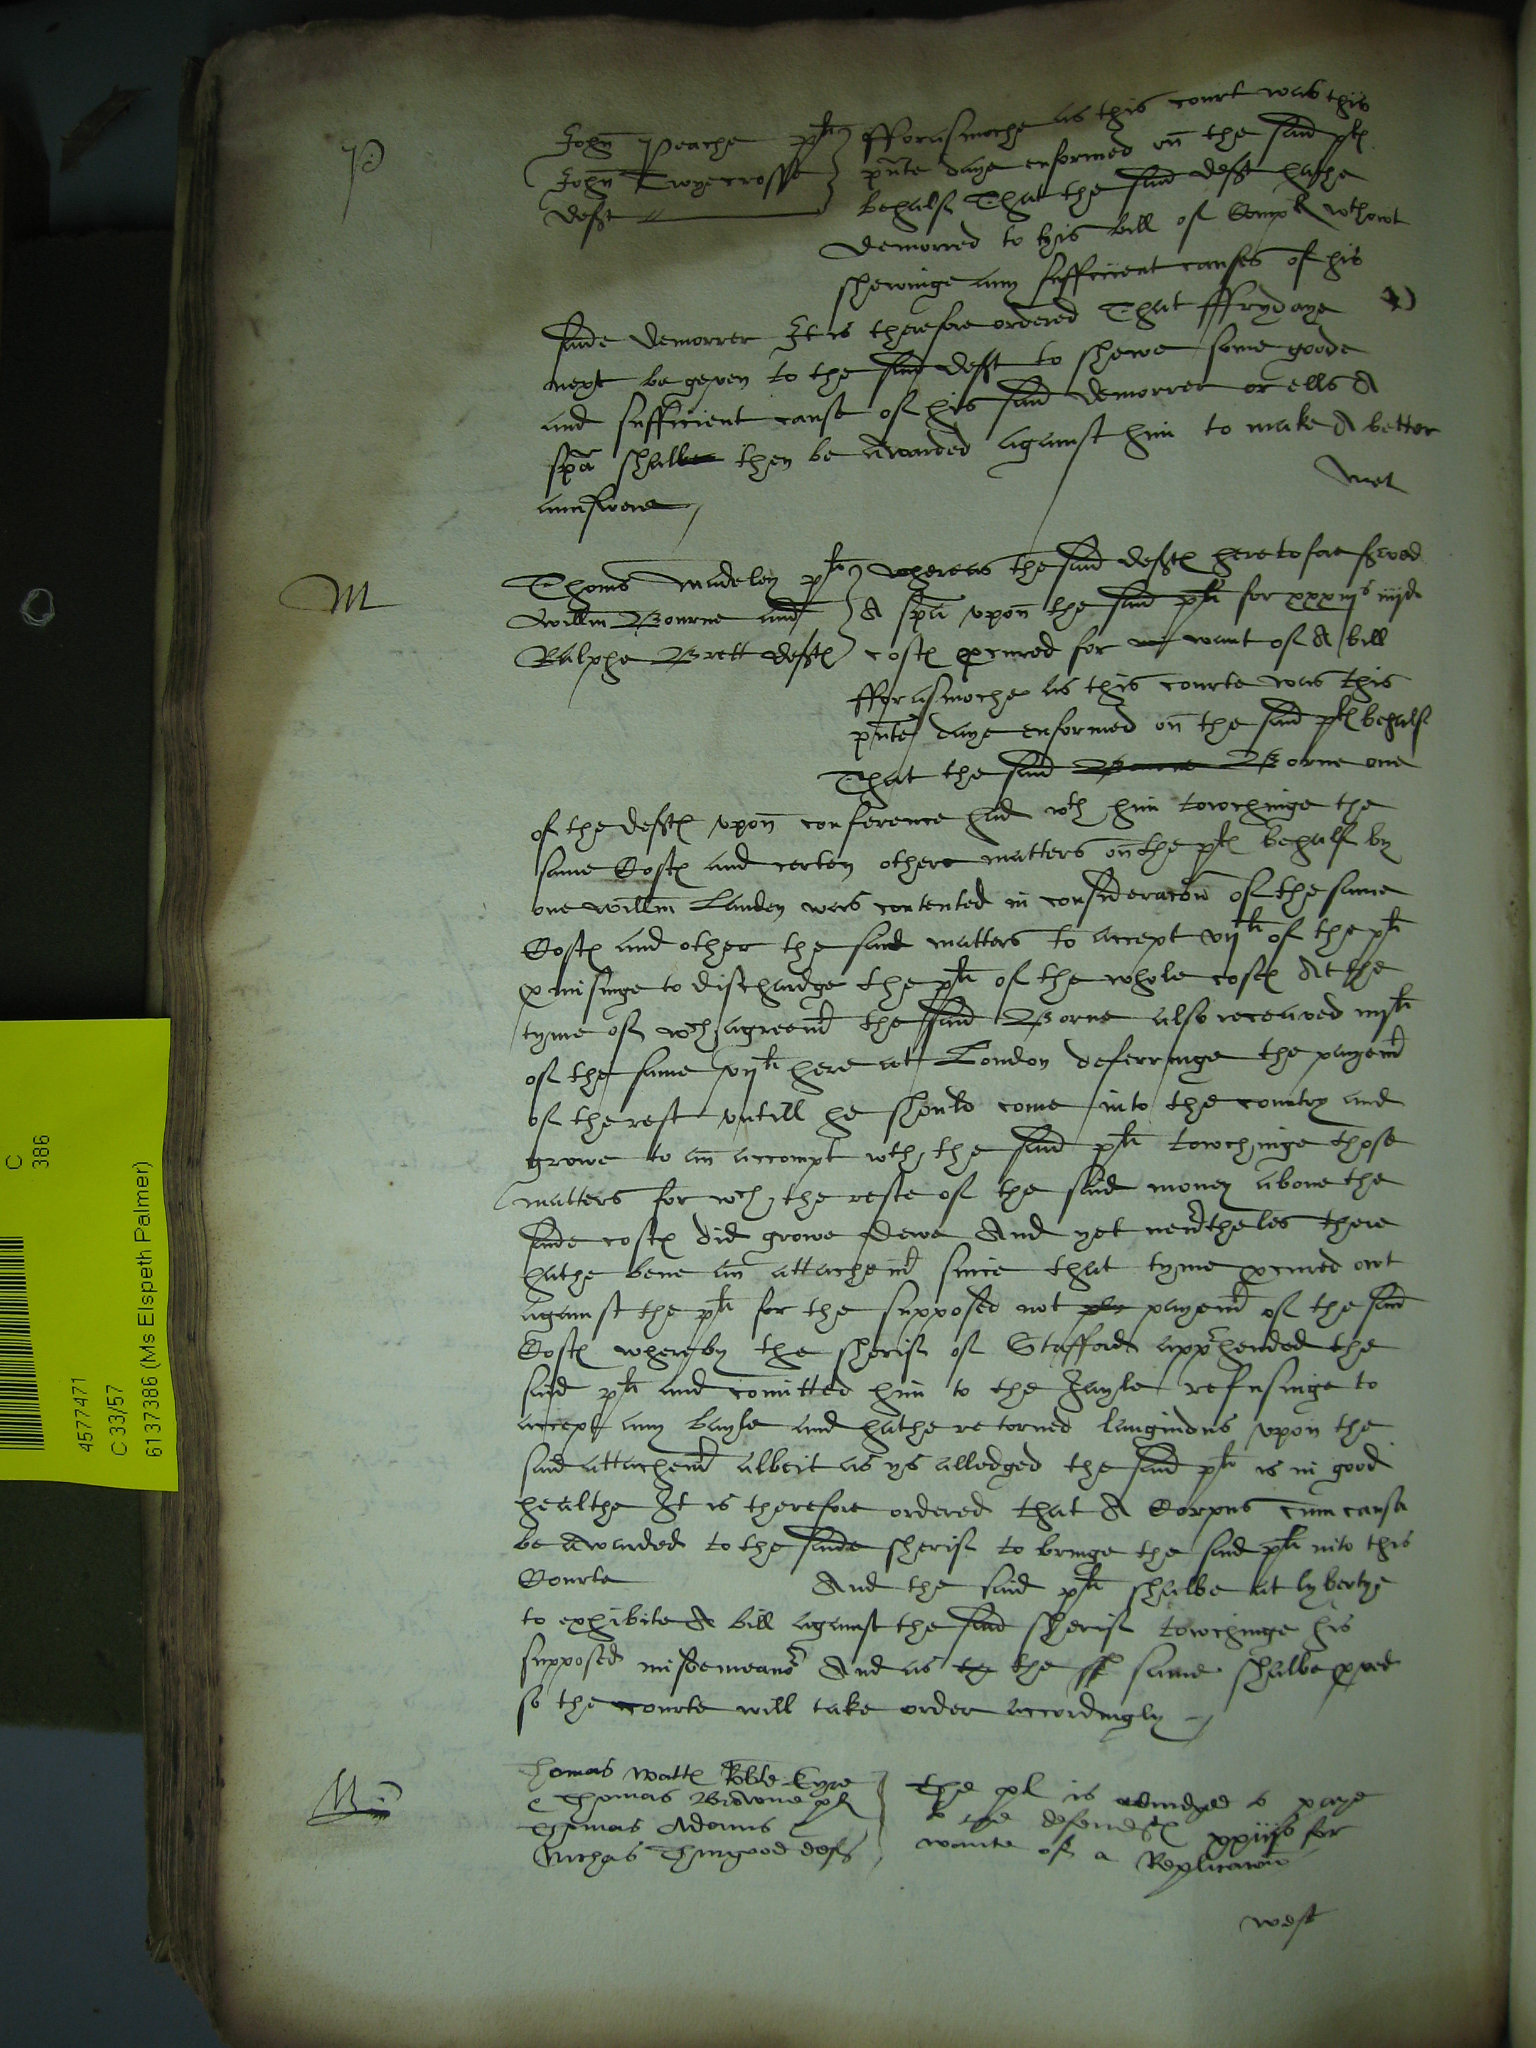 P
John Peache plt
John Twycrosse
deft
fforasmoche as this court was this
pnte daye enformed on the said plts
behalf That the said deft hathe
demorred to his bill of Complt wthowt
shewinge any sufficient causes of his
saide demorrer It is therefore ordered That ffrydaye
next be geven to the said deft to shewe some goode
and sufficient cause of his said demorrer or ells A
spa shalbe then be Awarded against him to make A better
aunswere
M
Thoms Madeley plt
Willm Bourne and
Ralphe Brett defts
whereas the said defts heretofore served
A spa upon the said plt for xxxiijs iiijd
costs pcured for want of A bill
fforasmoche as this courte was this
pnte daye enformed on the said plts behalf
That the said Bourne Borne one
of the defts upon conference had wth him towchinge the
same Costs and certen othere matters on the plts behalf by
one Willm Landey was contented in consideracon of the same
Costs and other the said matters to accept vijli of the plt
pmisinge to dischardge the plt of the whole costs At the
tyme of wch agreemt the said Borne also receaved iiijli
of the same vijli here at London deferringe the payemt
of the rest untill he should come into the countrey and
growe to an accompt wth the said plt towchinge those
matters for wch the reste of the said money above the
saide costs did growe dewe And yet nevertheles there
hathe bene an attachemt since that tyme pcured owt
against the plt for the supposed not pay payemt of the said
Costs whereby the sherif of Stafford apprhended the
said plt and comitted him to the Jayle refusinge to
accept any bayle and hathe retorned languidus upon the
said attachemt albeit as ys alledged the said plt is in good
healthe It is therefore ordered that A Corpus cum causa
be Awarded to the saide sherif to bringe the said plt into this
Courte And the said plt shalbe at lybertye
to exhibite A bill against the said sherif towchinge his
supposed misdemeanor And as to the sh same shalbe pved
so the courte will take order accordingly
M
Thomas Watts Robte Eyre
Thomas Browne pl
Thomas Adams
Nichas Thurgood defts
The pl is adiudged to paye
to the defendts xxiijs for
wante of a Replicacon
west
C
386
4577471
C 33/57
6137386 (Ms Elspeth Palmer)